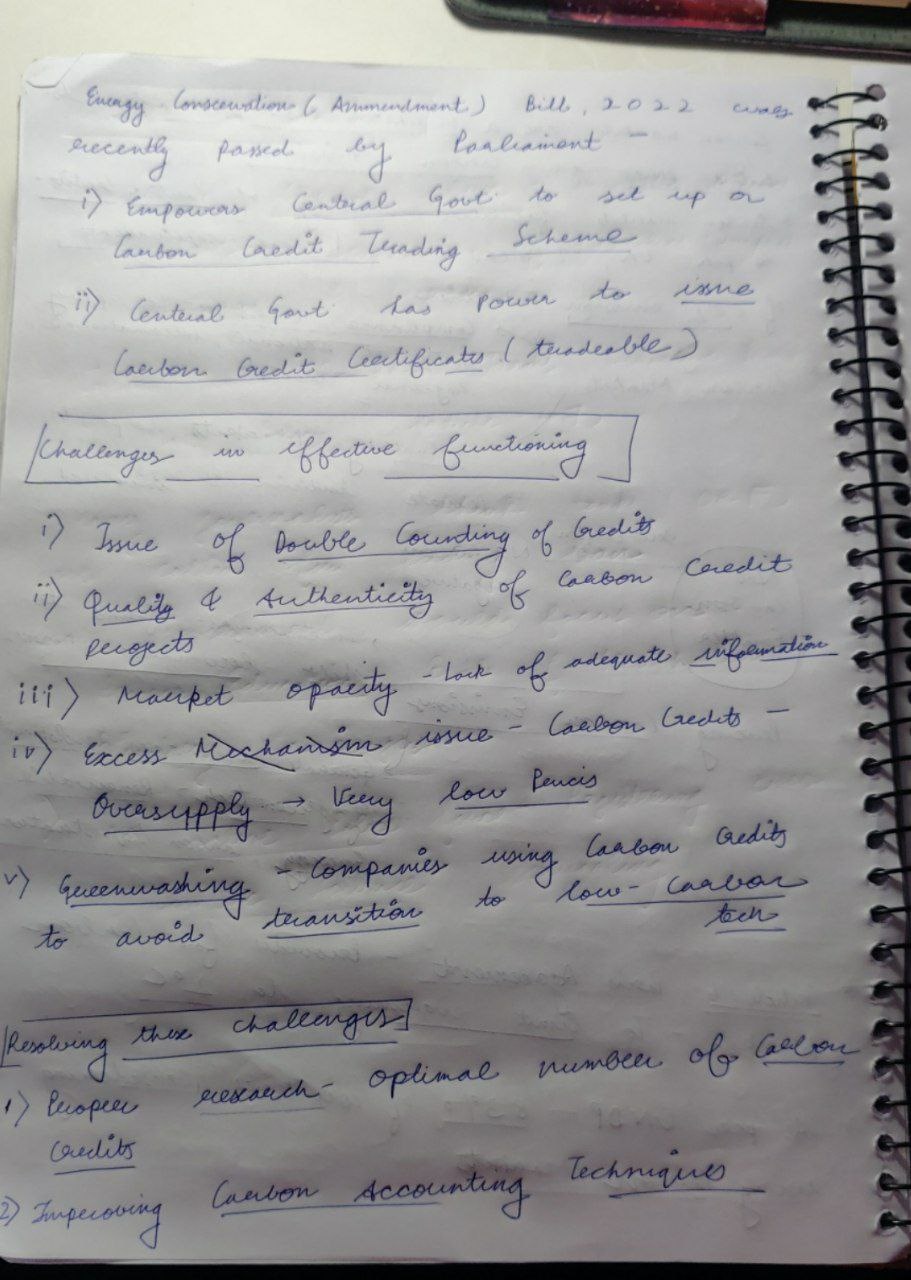 Energy Conservation (Ammendment) Bill, 2022 was
recently passed by Parliament -
i) Empowers Central Govt to set up a
Carbon Credit Trading Scheme
ii) Central Govt has power to issue
Carbon Credit Certificates (tradeable)
Challenges in effective functioning
i) Issue of Double Counting of Credits
ii) Quality & Authenticity of Carbon Credit
projects
iii) Market opacity - Lack of adequate information
iv) Excess Mechanism issue - Carbon Credits -
Oversupply → Very low Prices
v) Greenwashing - Companies using Carbon Credits
to avoid transition to low-carbon
tech
Resolving these challenges
1) Proper research - optimal number of Carbon
Credits
2) Improving Carbon Accounting Techniques